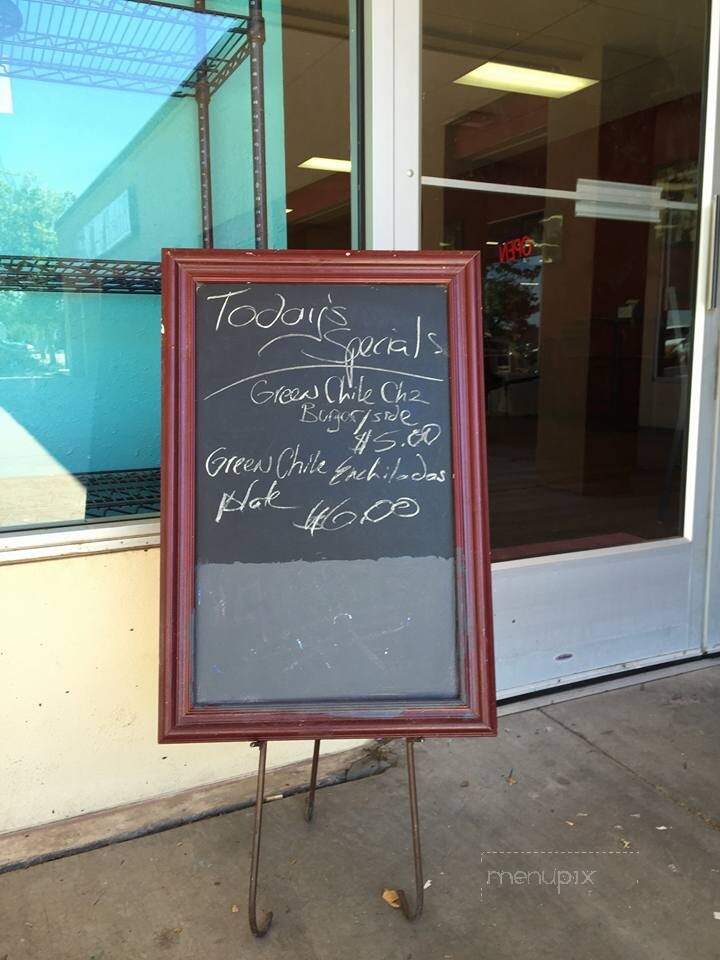 Today's
Specials
Green Chile Chz
Burger/side
$5.00
Green Chile Enchiladas
Plate $6.00
OPEN
menupix